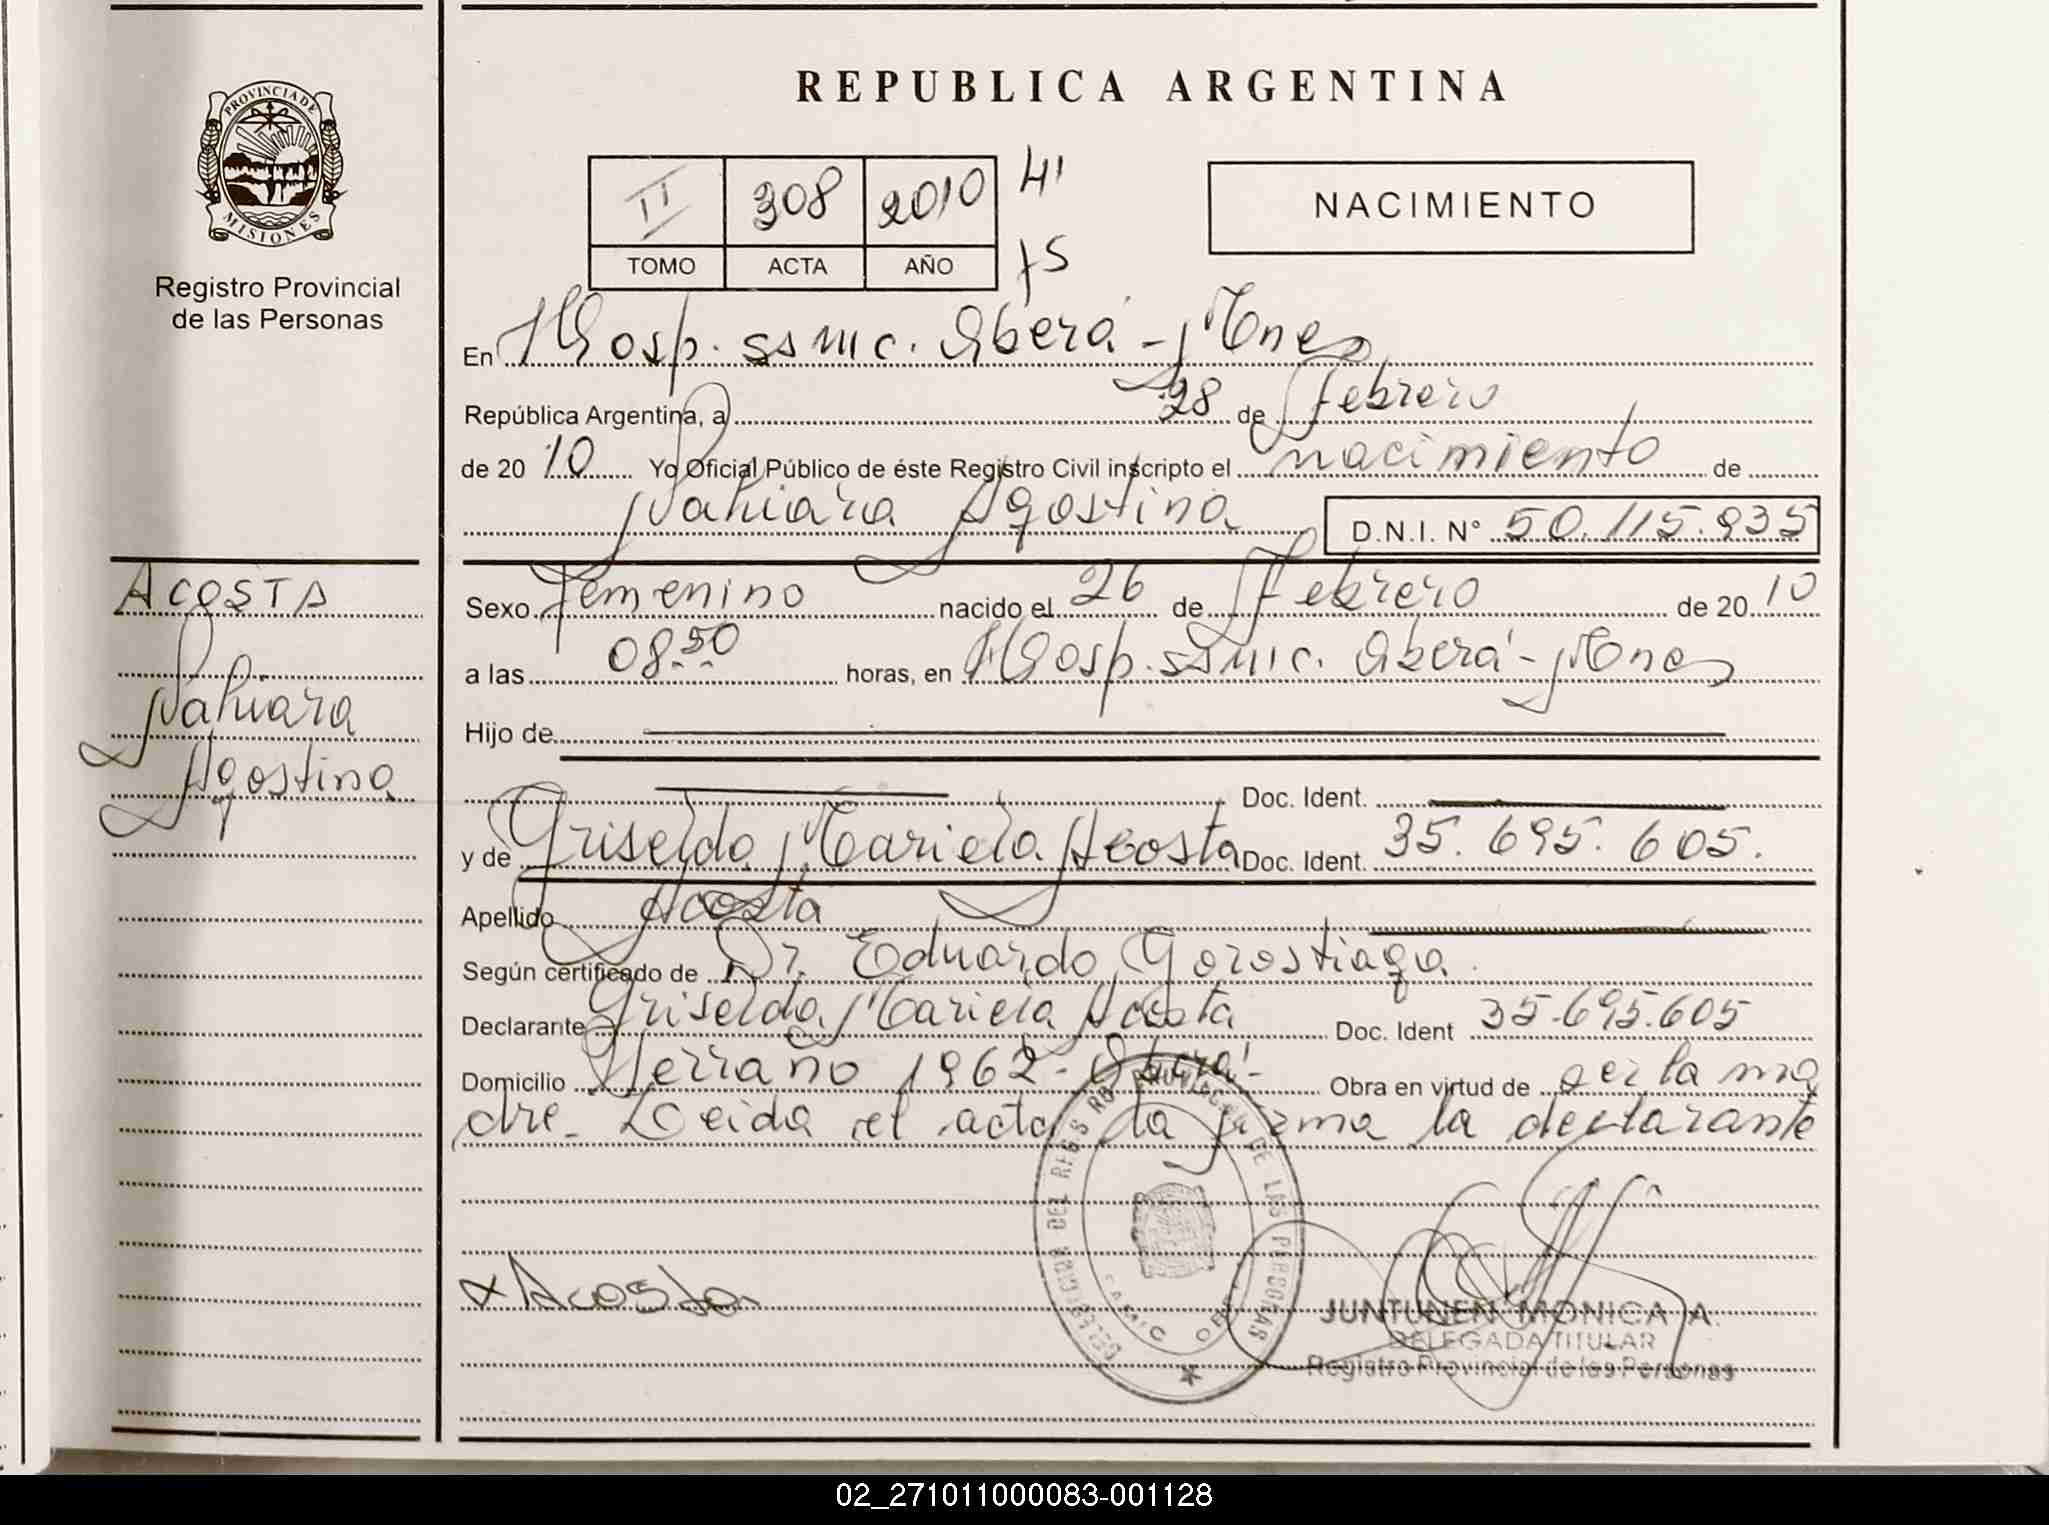 PROVINCIA DE
MISIONES
Registro Provincial
de las Personas
REPUBLICA ARGENTINA
II 308 2010
TOMO ACTA AÑO
NACIMIENTO
En Hosp. SSMIC. Oberá - Mnes
República Argentina, a 28 de Febrero
de 20 10 Yo Oficial Público de éste Registro Civil inscripto el nacimiento de
Nahiara Agostina D.N.I. N° 50.115.935
ACOSTA
Nahiara
Agostina
Sexo Femenino nacido el 26 de Febrero de 20 10
a las 08:50 horas, en Hosp. SSMIC. Oberá - Mnes
Hijo de
Doc. Ident.
y de Griselda Mariela Acosta Doc. Ident. 35.695.605.
Apellido Acosta
Según certificado de Dr. Eduardo Gorostiaga.
Declarante Griselda Mariela Acosta Doc. Ident 35.695.605
Domicilio 1962 - Oberá - Obra en virtud de ser la ma
dre. Leida el acta la firma la declarante
x Acosta
JUNTUNEN MONICA A.
DELEGADA TITULAR
Registro Provincial de las Personas
02_271011000083-001128